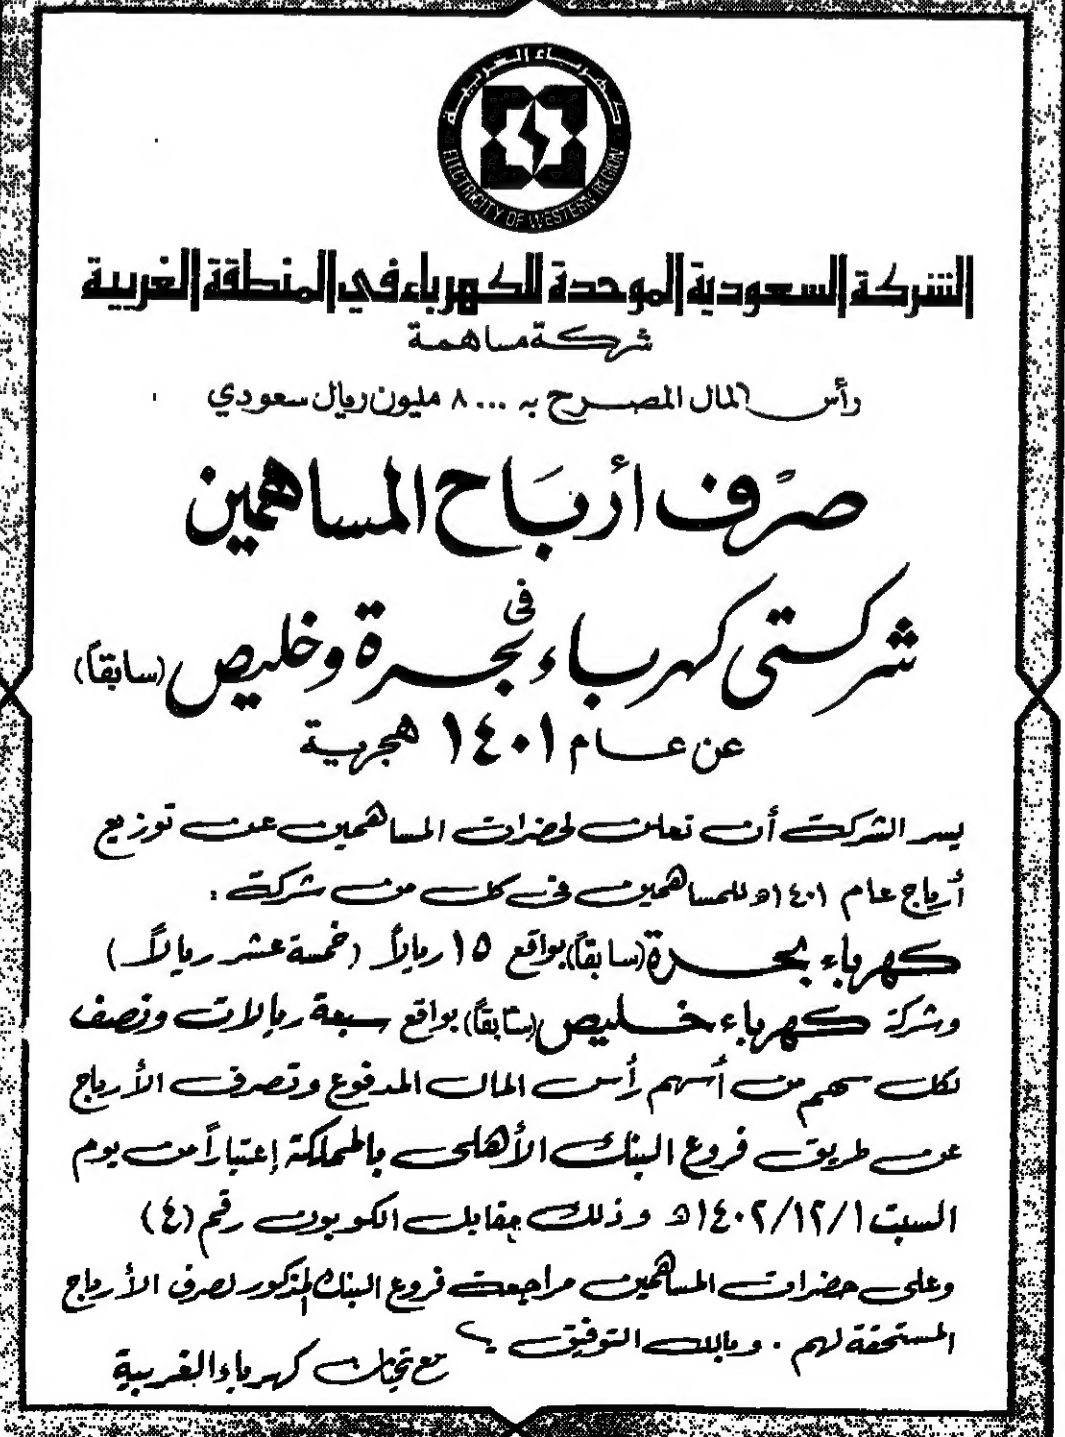 كهرباء الغربية
ELECTRICITY OF WESTERN REGION
الشركة السعودية الموحدة للكهرباء في المنطقة الغربية
شركة مساهمة
رأس المال المصرح به ٨٠٠٠ مليون ريال سعودي
صرف أرباح المساهمين
في
شركتي كهرباء بحرة وخليص (سابقاً)
عن عام ١٤٠١ هجرية
يسر الشركة أن تعلن لحضرات المساهمين عن توزيع
أرباح عام ١٤٠١ه للمساهمين في كل من شركة :
كهرباء بحرة (سابقاً) بواقع ١٥ ريالاً (خمسة عشر ريالاً)
وشركة كهرباء خليص (سابقاً) بواقع سبعة ريالات ونصف
لكل سهم من أسهم رأس المال المدفوع وتصرف الأرباح
عن طريق فروع البنك الأهلي بالمملكة إعتباراً من يوم
السبت ١٤٠٢/١٢/١ه وذلك مقابل الكوبون رقم (٤)
وعلى حضرات المساهمين مراجعة فروع البنك المذكور لصرف الأرباح
المستحقة لهم . وبالله التوفيق ،،
مع تحيات كهرباء الغربية